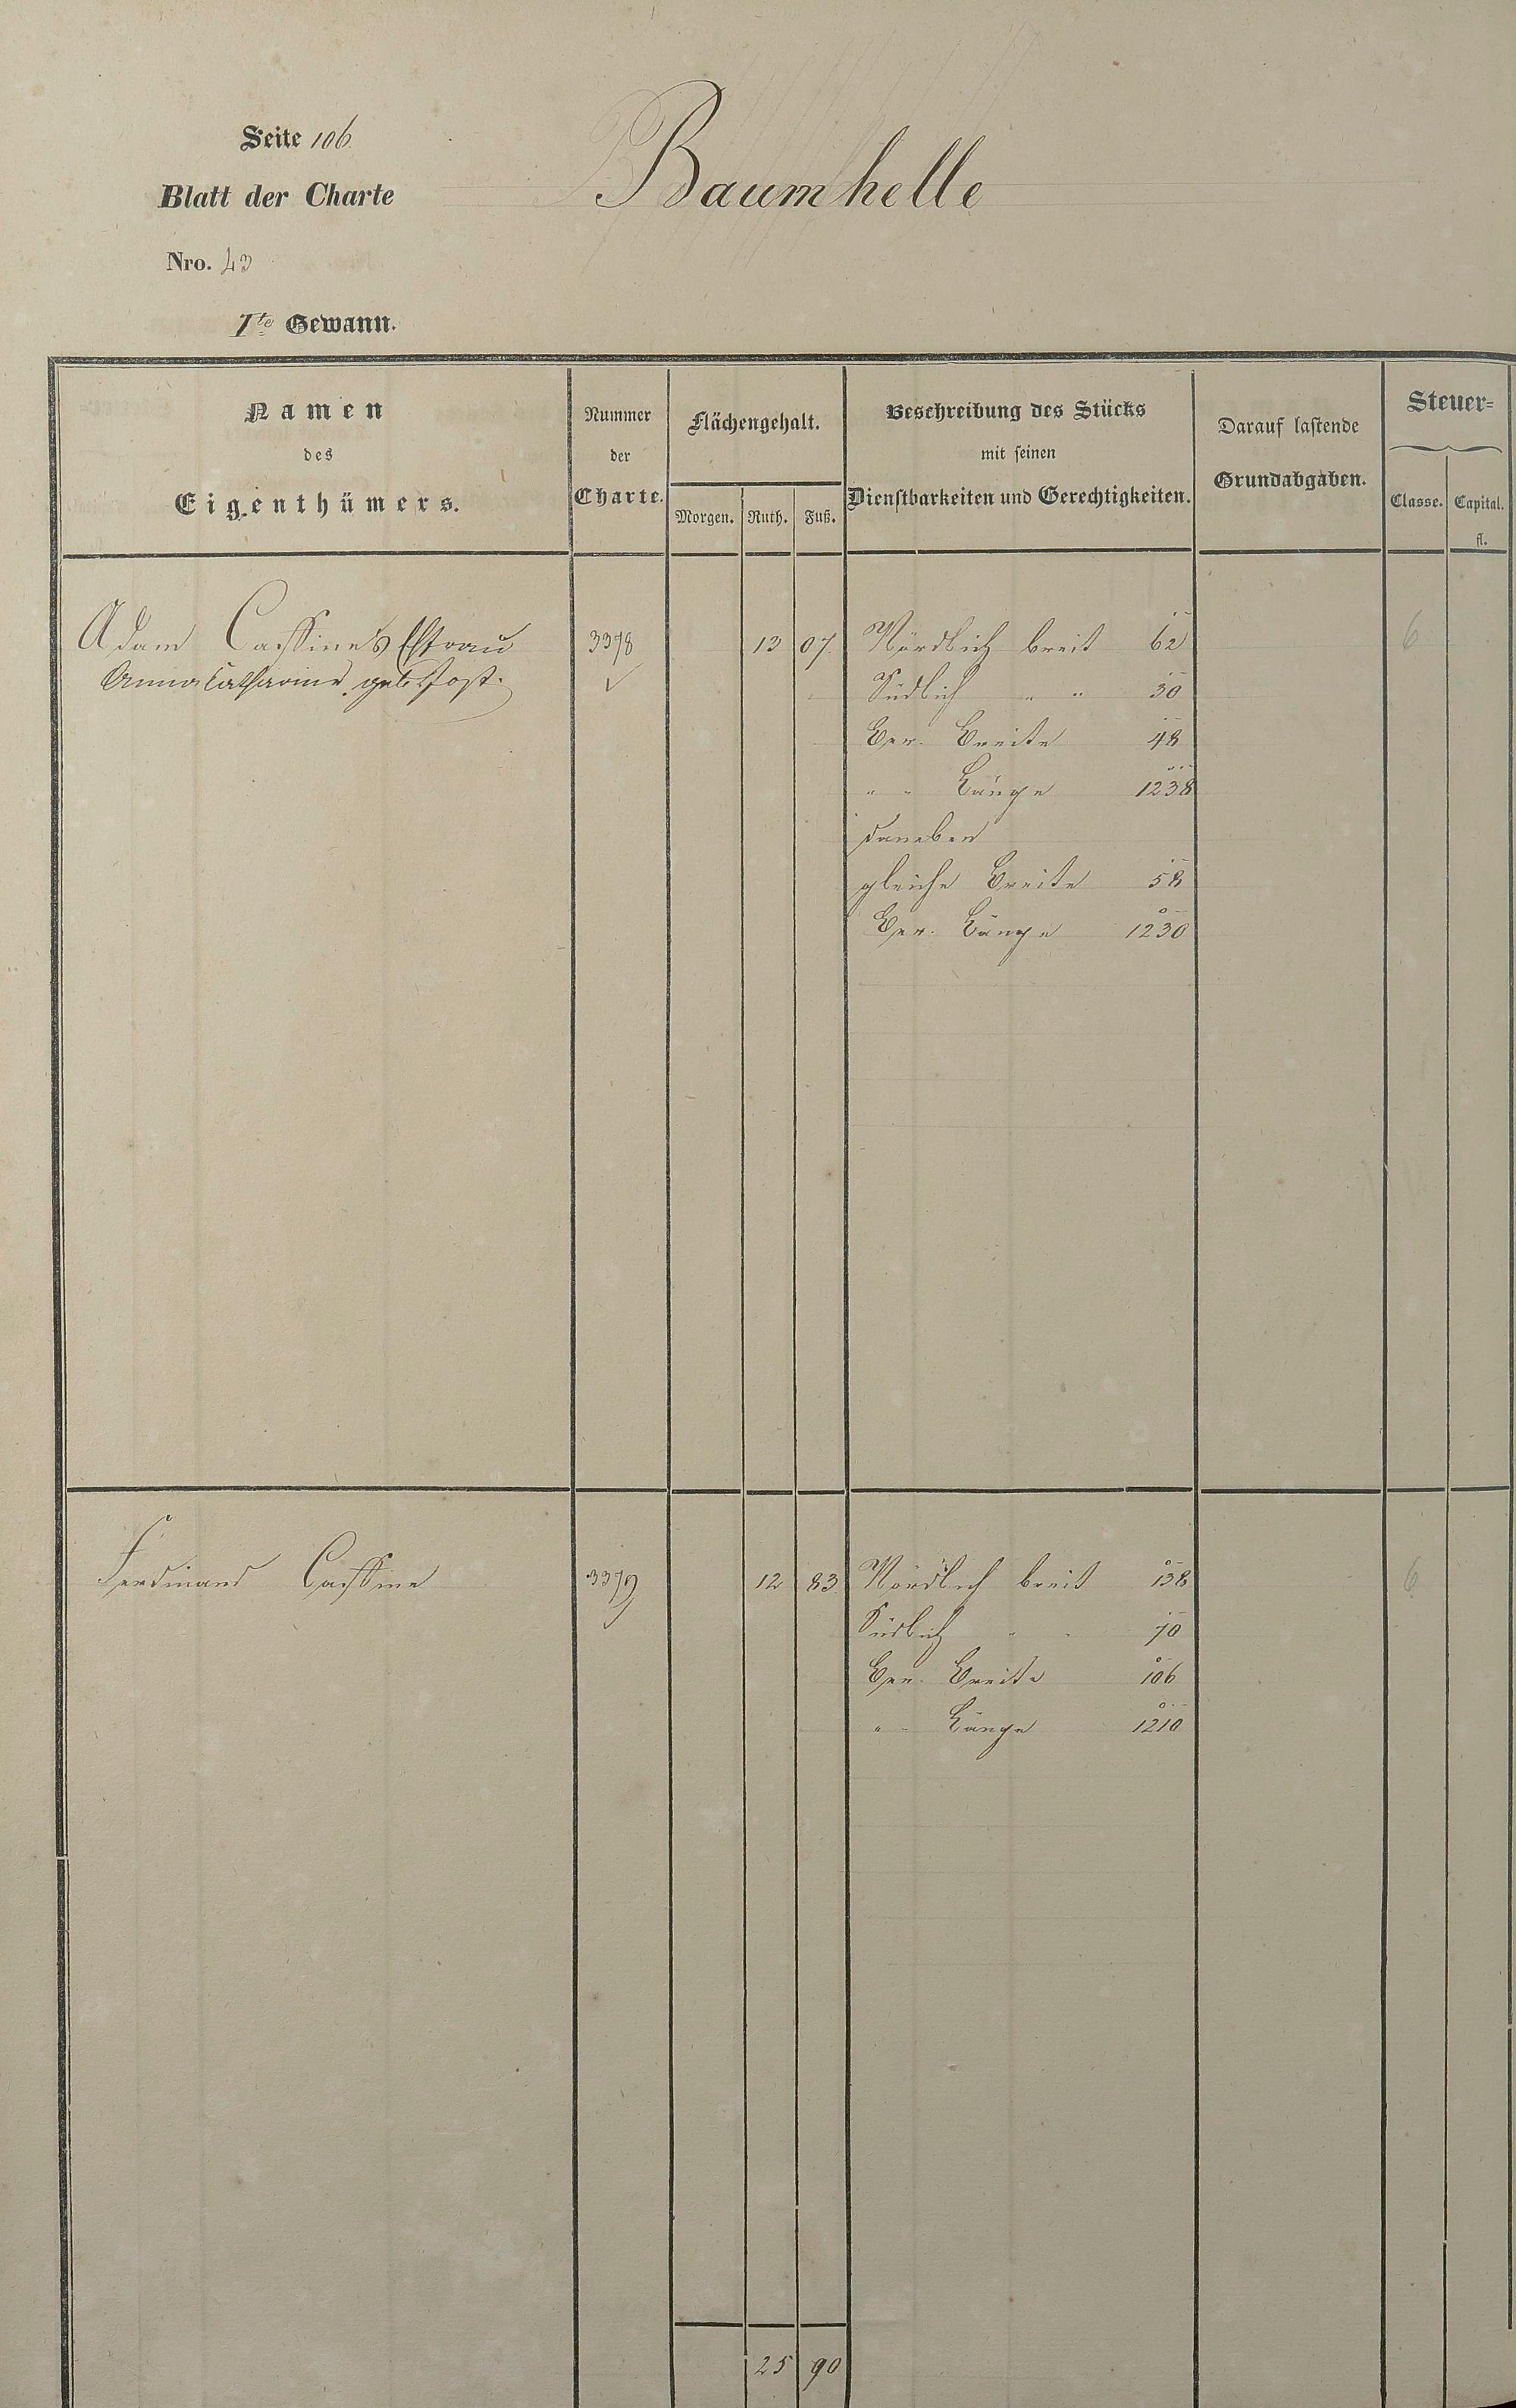 Seite 106.
Blatt der Charte
Baumhelle
Nro. 43
1te Gewann.
Namen
des
Eigenthümers.
Nummer
der
Charte.
Flächengehalt.
Morgen. Ruth. Fuß.
Beschreibung des Stücks
mit seinen
Dienstbarkeiten und Gerechtigkeiten.
Darauf lastende
Grundabgaben.
Steuer=
Classe. Capital.
fl.
Adam Cassine's Ehfrau 3378 13 07. Nördlich breit 62 6
Anna Catharina geb. Jost. Südlich " " 30
Ger. Breite 48
" " Länge 1238
daneben
gleiche Breite 58
Ger. Länge 1230
Ferdinand Cassine 3379 12 83. Nördlich breit 138 6
Südlich " " 70
Ger. Breite 106
" " Länge 1210
25 90